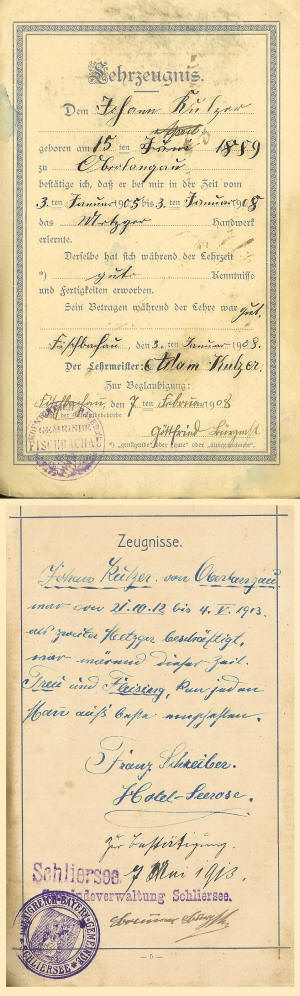 Lehrzeugnis.
Dem Johann Kutzer
April
geboren am 15 ten Juni 1889
zu Oberlangau
bestätige ich, daß er bei mir in der Zeit vom
3. ten Januar 1905 bis 3. ten Januar 1908
das Metzger Handwerk
erlernte.
Derselbe hat sich während der Lehrzeit
*) gute Kenntnisse
und Fertigkeiten erworben.
Sein Betragen während der Lehre war gut.
Fischbachau, den 3. ten Januar 1908.
Der Lehrmeister: Adam Kutzer.
Zur Beglaubigung:
Fischbachau, den 7 ten Februar 1908
Gottfried Bürgmst
*) „genügende" oder „gute" oder „ausgezeichnete".
GEMEINDE
FISCHBACHAU
Zeugnisse.
Johann Kutzer von Oberlangau
war von 21.10.12 bis 4. V. 1913.
als zweiter Metzger beschäftigt,
war wärend dieser Zeit.
Treu und Fleisig, kan jeden
Man aufs beste empfehlen.
Franz Schreiber.
Hotel-Seerose.
Zur Bestätigung.
Schliersee. 7 Mai 1913.
Gemeindeverwaltung Schliersee.
KÖNIGREICH-BAYERN-GEMEINDE
SCHLIERSEE
- 5 -